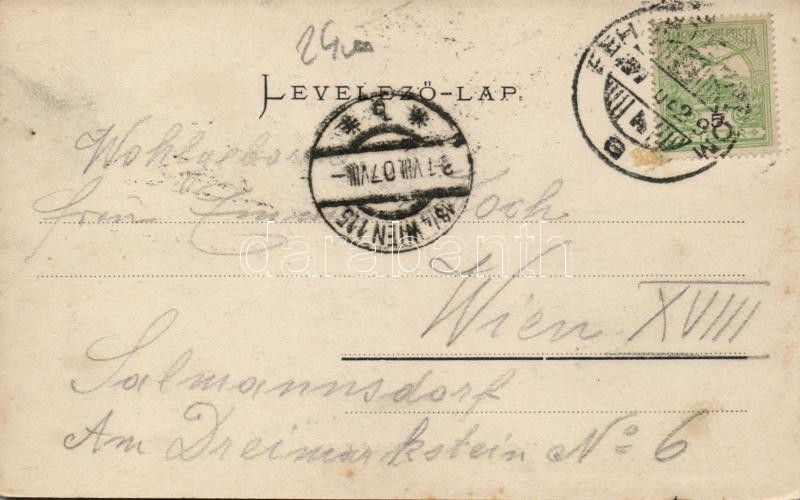 24
LEVELEZŐ-LAP.
Wohlgeboren
Frau Emma Koch
Wien XVIII
Salmannsdorf
Am Dreimarkstein No 6
18/4 WIEN 115
31 VIII 07 VIII
5
darabanth